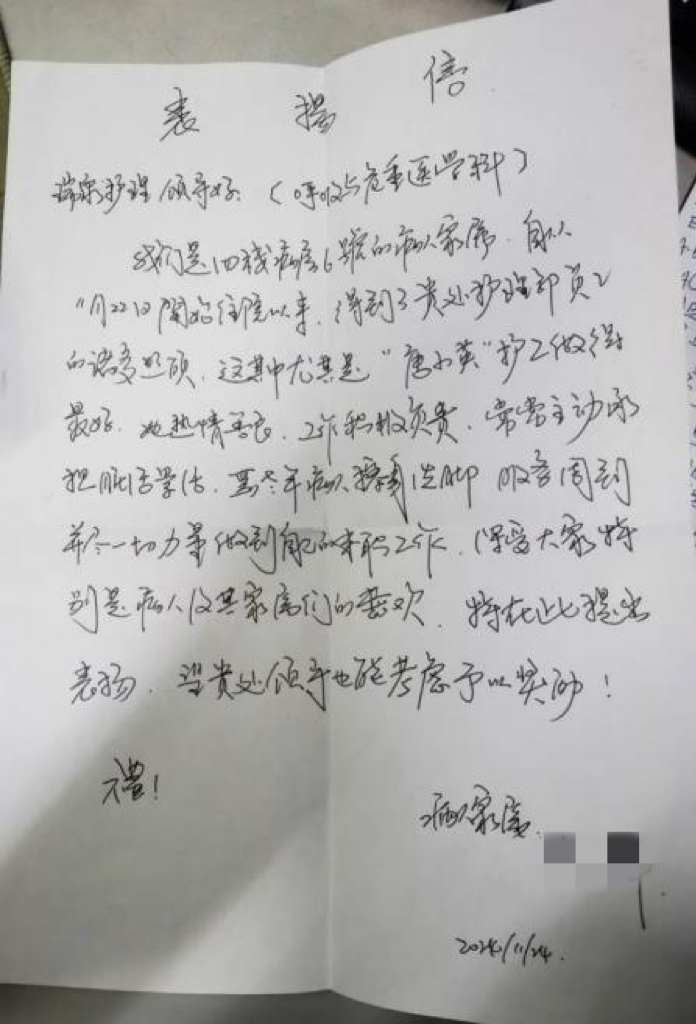 表扬信
瑞泉护理领导好：（呼吸与危重医学科）
我们是四栈病房6號的病人家属．自从
11月22日開始住院以来，得到了贵处护理部员工
的诸多照顾．这其中尤其是“唐小英”护工做得
最好．她热情善良，工作积极负责，常常主动承
担脏活累活．为老年病人擦身洗脚 服务周到
并尽一切力量做到自己的本职工作．深受大家特
别是病人及其家属们的喜欢．特在此提出
表扬．望贵处领导也能考虑予以奖励！
禮！
病人家属．
11/24.